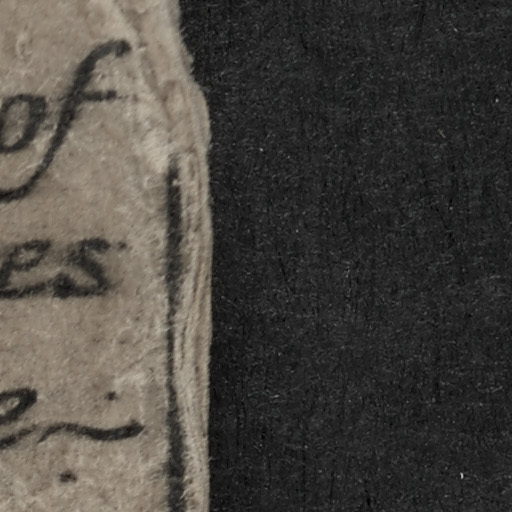 of
es
e